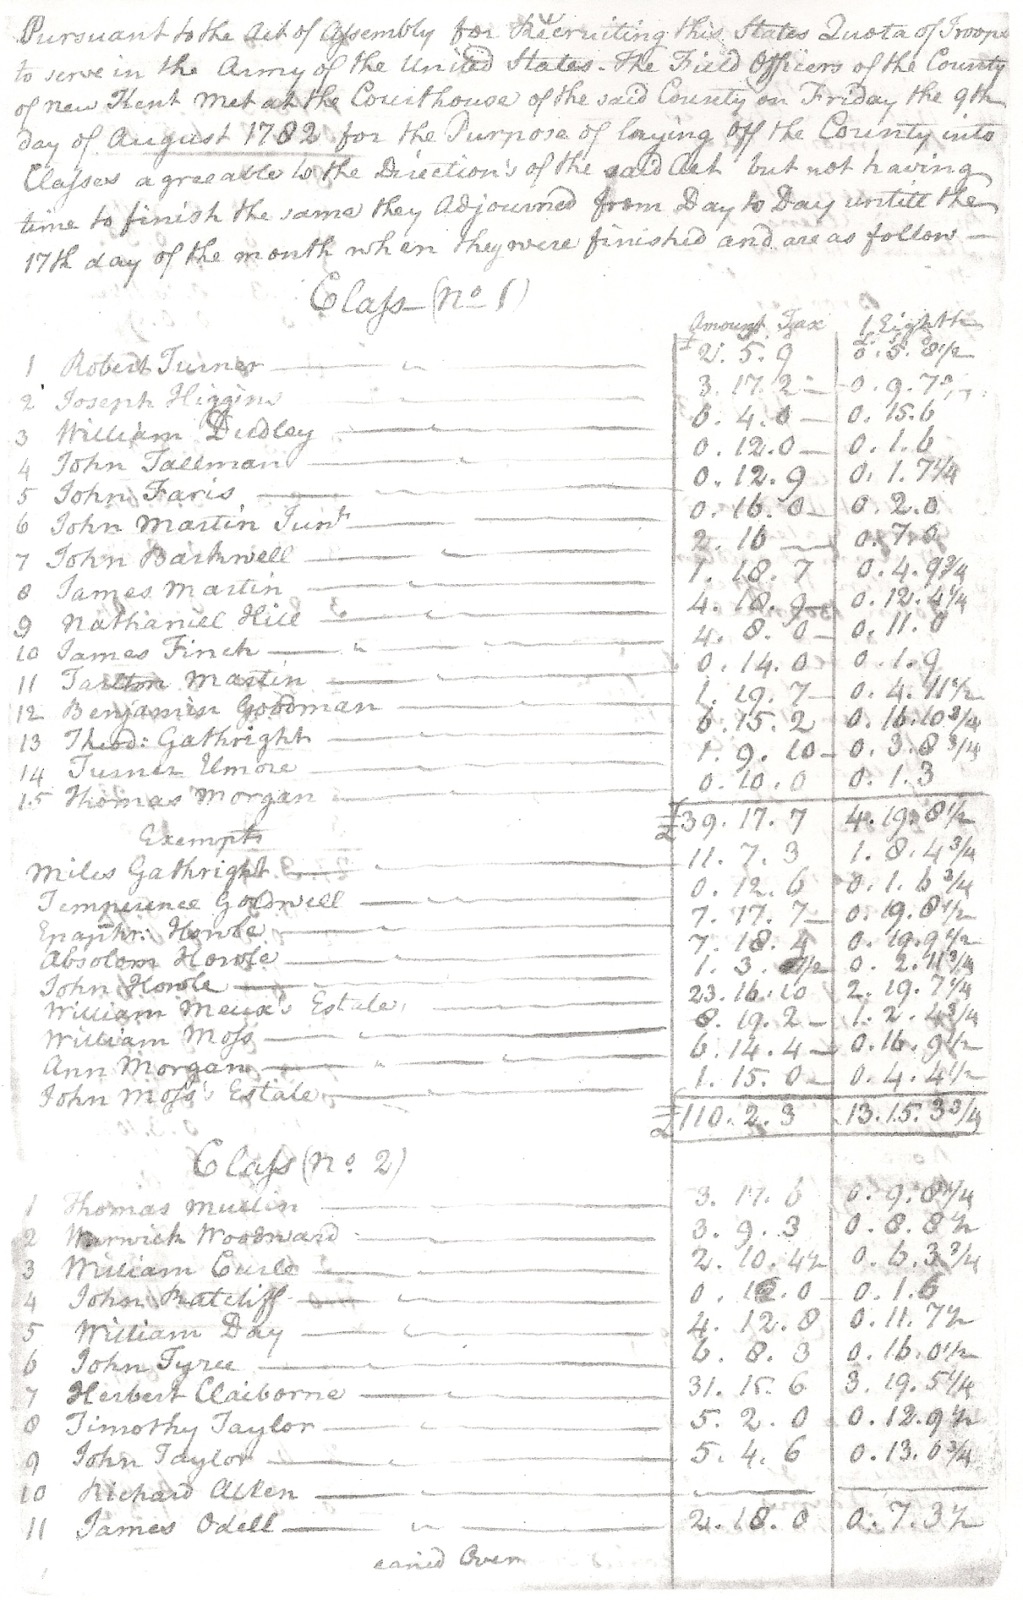 Pursuant to the Act of Assembly for Recruiting this States Quota of Troops
to serve in the Army of the United States - the Field Officers of the County
of New Kent Met at the Courthouse of the said County on Friday the 9th
day of August 1782 for the Purpose of laying off the County into
Classes agreeable to the Direction's of the said Act but not having
time to finish the same they Adjourned from Day to Day untill the
17th day of the month when they were finished and are as follow —
Class (No 1)
Amount Tax 1 Eighth
1 Robert Turner 2. 5. 9 0. 5. 8 1/2
2 Joseph Higgins 3. 17. 2 0. 9. 7
3 William Dudley 6. 4. 0 0. 15. 6
4 John Tallman 0. 12. 0 0. 1. 6
5 John Faris 0. 12. 9 0. 1. 7 1/4
6 John Martin Junr 0. 16. 0 0. 2. 0
7 John Barkwell 2. 16 0. 7. 0
8 James Martin 1. 18. 7 0. 4. 9 3/4
9 Nathaniel Hill 4. 18. 9 0. 12. 4 1/4
10 James Finch 4. 8. 0 0. 11. 0
11 Tarlton Martin 0. 14. 0 0. 1. 9
12 Benjamin Goodman 1. 19. 7 0. 4. 11 1/2
13 Thod: Gathright 6. 15. 2 0. 16. 10 3/4
14 Turner Umore 1. 9. 10 0. 3. 8 3/4
15 Thomas Morgan 0. 10. 0 0. 1. 3
£39. 17. 7 4. 19. 8 1/2
Exempts
Miles Gathright 11. 7. 3 1. 8. 4 3/4
Temperence Goldwell 0. 12. 6 0. 1. 6 3/4
Epaphr: Howle 7. 17. 7 0. 19. 8 1/2
Absolom Howle 7. 18. 4 0. 19. 9 1/2
John Howle 1. 3. 0. 2. 11 3/4
William Meux's Estate 23. 16. 10 2. 19. 7 1/4
William Moss 8. 19. 2 1. 2. 4 3/4
Ann Morgan 6. 14. 4 0. 16. 9 1/2
John Moss's Estate 1. 15. 0 0. 4. 4 1/2
£110. 2. 3 13. 15. 3 3/4
Class (No. 2)
1 Thomas Mullin 3. 17. 6 0. 9. 8 1/4
2 Warwick Woodward 3. 9. 3 0. 8. 8 1/2
3 William Curle 2. 10. 4 1/2 0. 6. 3 3/4
4 John Ratcliff 0. 12. 0 0. 1. 6
5 William Day 4. 12. 8 0. 11. 7 1/2
6 John Tyree 6. 8. 3 0. 16. 0 1/2
7 Herbert Claiborne 31. 15. 6 3. 19. 5 1/4
8 Timothy Taylor 5. 2. 0 0. 12. 9 1/2
9 John Taylor 5. 4. 6 0. 13. 0 3/4
10 Richard Allen
11 James Odell 2. 18. 0 0. 7. 3 1/2
caried Over